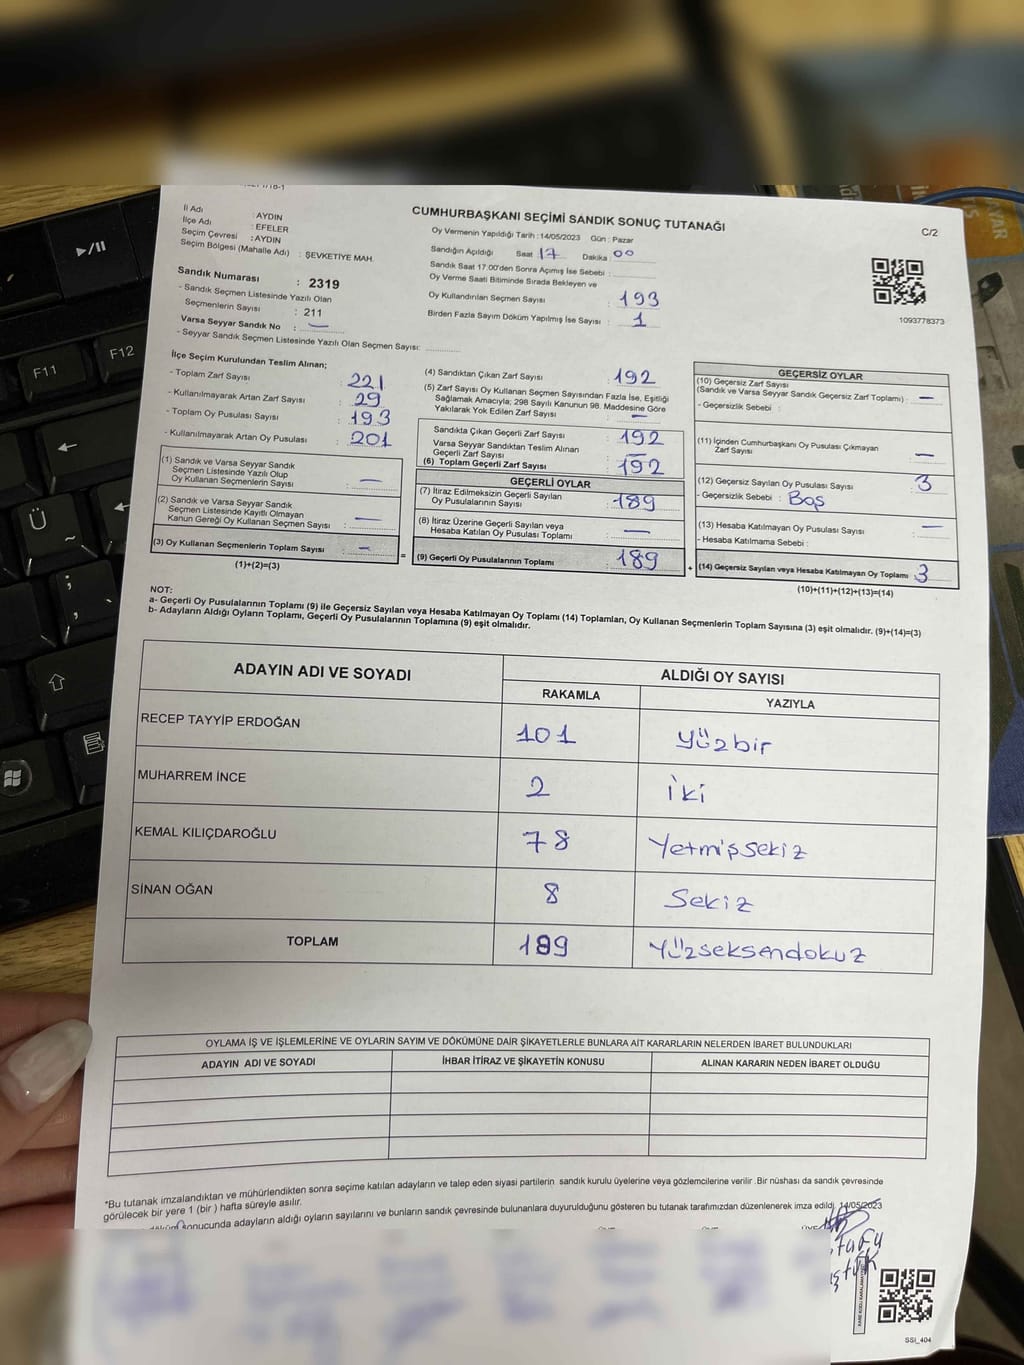 İl Adı : AYDIN
İlçe Adı : EFELER
Seçim Çevresi : AYDIN
Seçim Bölgesi (Mahalle Adı) : ŞEVKETİYE MAH.
Sandık Numarası : 2319
- Sandık Seçmen Listesinde Yazılı Olan
Seçmenlerin Sayısı : 211
Varsa Seyyar Sandık No : —
- Seyyar Sandık Seçmen Listesinde Yazılı Olan Seçmen Sayısı:
CUMHURBAŞKANI SEÇİMİ SANDIK SONUÇ TUTANAĞI
C/2
Oy Vermenin Yapıldığı Tarih : 14/05/2023 Gün : Pazar
Sandığın Açıldığı Saat 17 Dakika 00
Sandık Saat 17.00'den Sonra Açımış İse Sebebi :
Oy Verme Saati Bitiminde Sırada Bekleyen ve
Oy Kullandırılan Seçmen Sayısı : 193
Birden Fazla Sayım Döküm Yapılmış İse Sayısı : 1
1093778373
İlçe Seçim Kurulundan Teslim Alınan;
- Toplam Zarf Sayısı : 221
- Kullanılmayarak Artan Zarf Sayısı : 29
- Toplam Oy Pusulası Sayısı : 193
- Kullanılmayarak Artan Oy Pusulası : 201
(1) Sandık ve Varsa Seyyar Sandık
Seçmen Listesinde Yazılı Olup
Oy Kullanan Seçmenlerin Sayısı : —
(2) Sandık ve Varsa Seyyar Sandık
Seçmen Listesinde Kayıtlı Olmayan
Kanun Gereği Oy Kullanan Seçmen Sayısı : —
(3) Oy Kullanan Seçmenlerin Toplam Sayısı : —
(1)+(2)=(3)
(4) Sandıktan Çıkan Zarf Sayısı : 192
(5) Zarf Sayısı Oy Kullanan Seçmen Sayısından Fazla İse, Eşitliği
Sağlamak Amacıyla; 298 Sayılı Kanunun 98. Maddesine Göre
Yakılarak Yok Edilen Zarf Sayısı : —
Sandıkta Çıkan Geçerli Zarf Sayısı : 192
Varsa Seyyar Sandıktan Teslim Alınan
Geçerli Zarf Sayısı : —
(6) Toplam Geçerli Zarf Sayısı : 192
GEÇERLİ OYLAR
(7) İtiraz Edilmeksizin Geçerli Sayılan
Oy Pusulalarının Sayısı : 189
(8) İtiraz Üzerine Geçerli Sayılan veya
Hesaba Katılan Oy Pusulası Toplamı : —
= (9) Geçerli Oy Pusulalarının Toplamı : 189
GEÇERSİZ OYLAR
(10) Geçersiz Zarf Sayısı
(Sandık ve Varsa Seyyar Sandık Geçersiz Zarf Toplamı) : —
- Geçersizlik Sebebi :
(11) İçinden Cumhurbaşkanı Oy Pusulası Çıkmayan
Zarf Sayısı : —
(12) Geçersiz Sayılan Oy Pusulası Sayısı : 3
- Geçersizlik Sebebi : Boş
(13) Hesaba Katılmayan Oy Pusulası Sayısı : —
- Hesaba Katılmama Sebebi :
+ (14) Geçersiz Sayılan veya Hesaba Katılmayan Oy Toplamı : 3
(10)+(11)+(12)+(13)=(14)
NOT:
a- Geçerli Oy Pusulalarının Toplamı (9) ile Geçersiz Sayılan veya Hesaba Katılmayan Oy Toplamı (14) Toplamları, Oy Kullanan Seçmenlerin Toplam Sayısına (3) eşit olmalıdır. (9)+(14)=(3)
b- Adayların Aldığı Oyların Toplamı, Geçerli Oy Pusulalarının Toplamına (9) eşit olmalıdır.
ADAYIN ADI VE SOYADI ALDIĞI OY SAYISI
RAKAMLA YAZIYLA
RECEP TAYYİP ERDOĞAN 101 yüzbir
MUHARREM İNCE 2 iki
KEMAL KILIÇDAROĞLU 78 Yetmişsekiz
SİNAN OĞAN 8 Sekiz
TOPLAM 189 Yüzseksendokuz
OYLAMA İŞ VE İŞLEMLERİNE VE OYLARIN SAYIM VE DÖKÜMÜNE DAİR ŞİKAYETLERLE BUNLARA AİT KARARLARIN NELERDEN İBARET BULUNDUKLARI
ADAYIN ADI VE SOYADI İHBAR İTİRAZ VE ŞİKAYETİN KONUSU ALINAN KARARIN NEDEN İBARET OLDUĞU
*Bu tutanak imzalandıktan ve mühürlendikten sonra seçime katılan adayların ve talep eden siyasi partilerin sandık kurulu üyelerine veya gözlemcilerine verilir. Bir nüshası da sandık çevresinde
görülecek bir yere 1 (bir ) hafta süreyle asılır.
sonucunda adayların aldığı oyların sayılarını ve bunların sandık çevresinde bulunanlara duyurulduğunu gösteren bu tutanak tarafımızdan düzenlenerek imza edildi. 14/05/2023
SSI_404
F11
F12
Ü
~
;
,